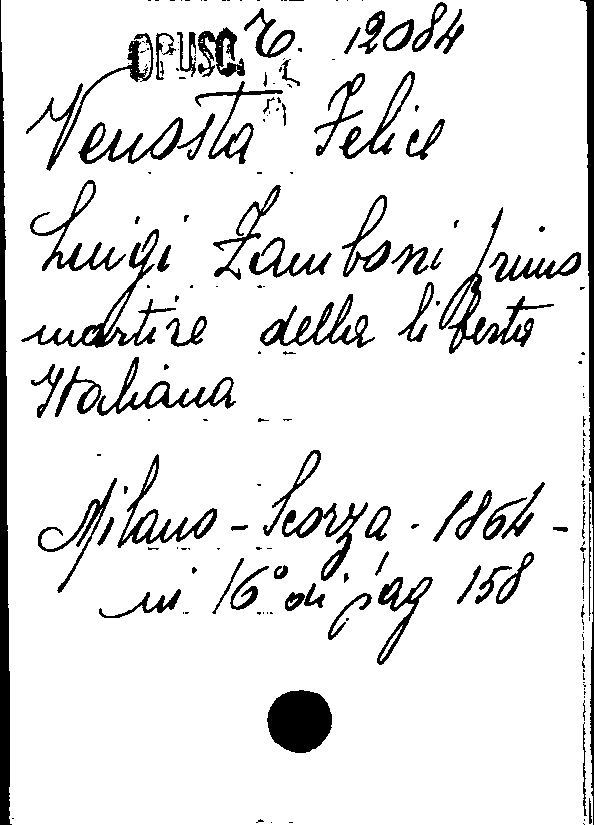 OPUSC. C. 12084
Venosta Felice
Luigi Zamboni primo
martire della liberta
Italiana
Milano - Scorza - 1864 -
in 16° di pag 158